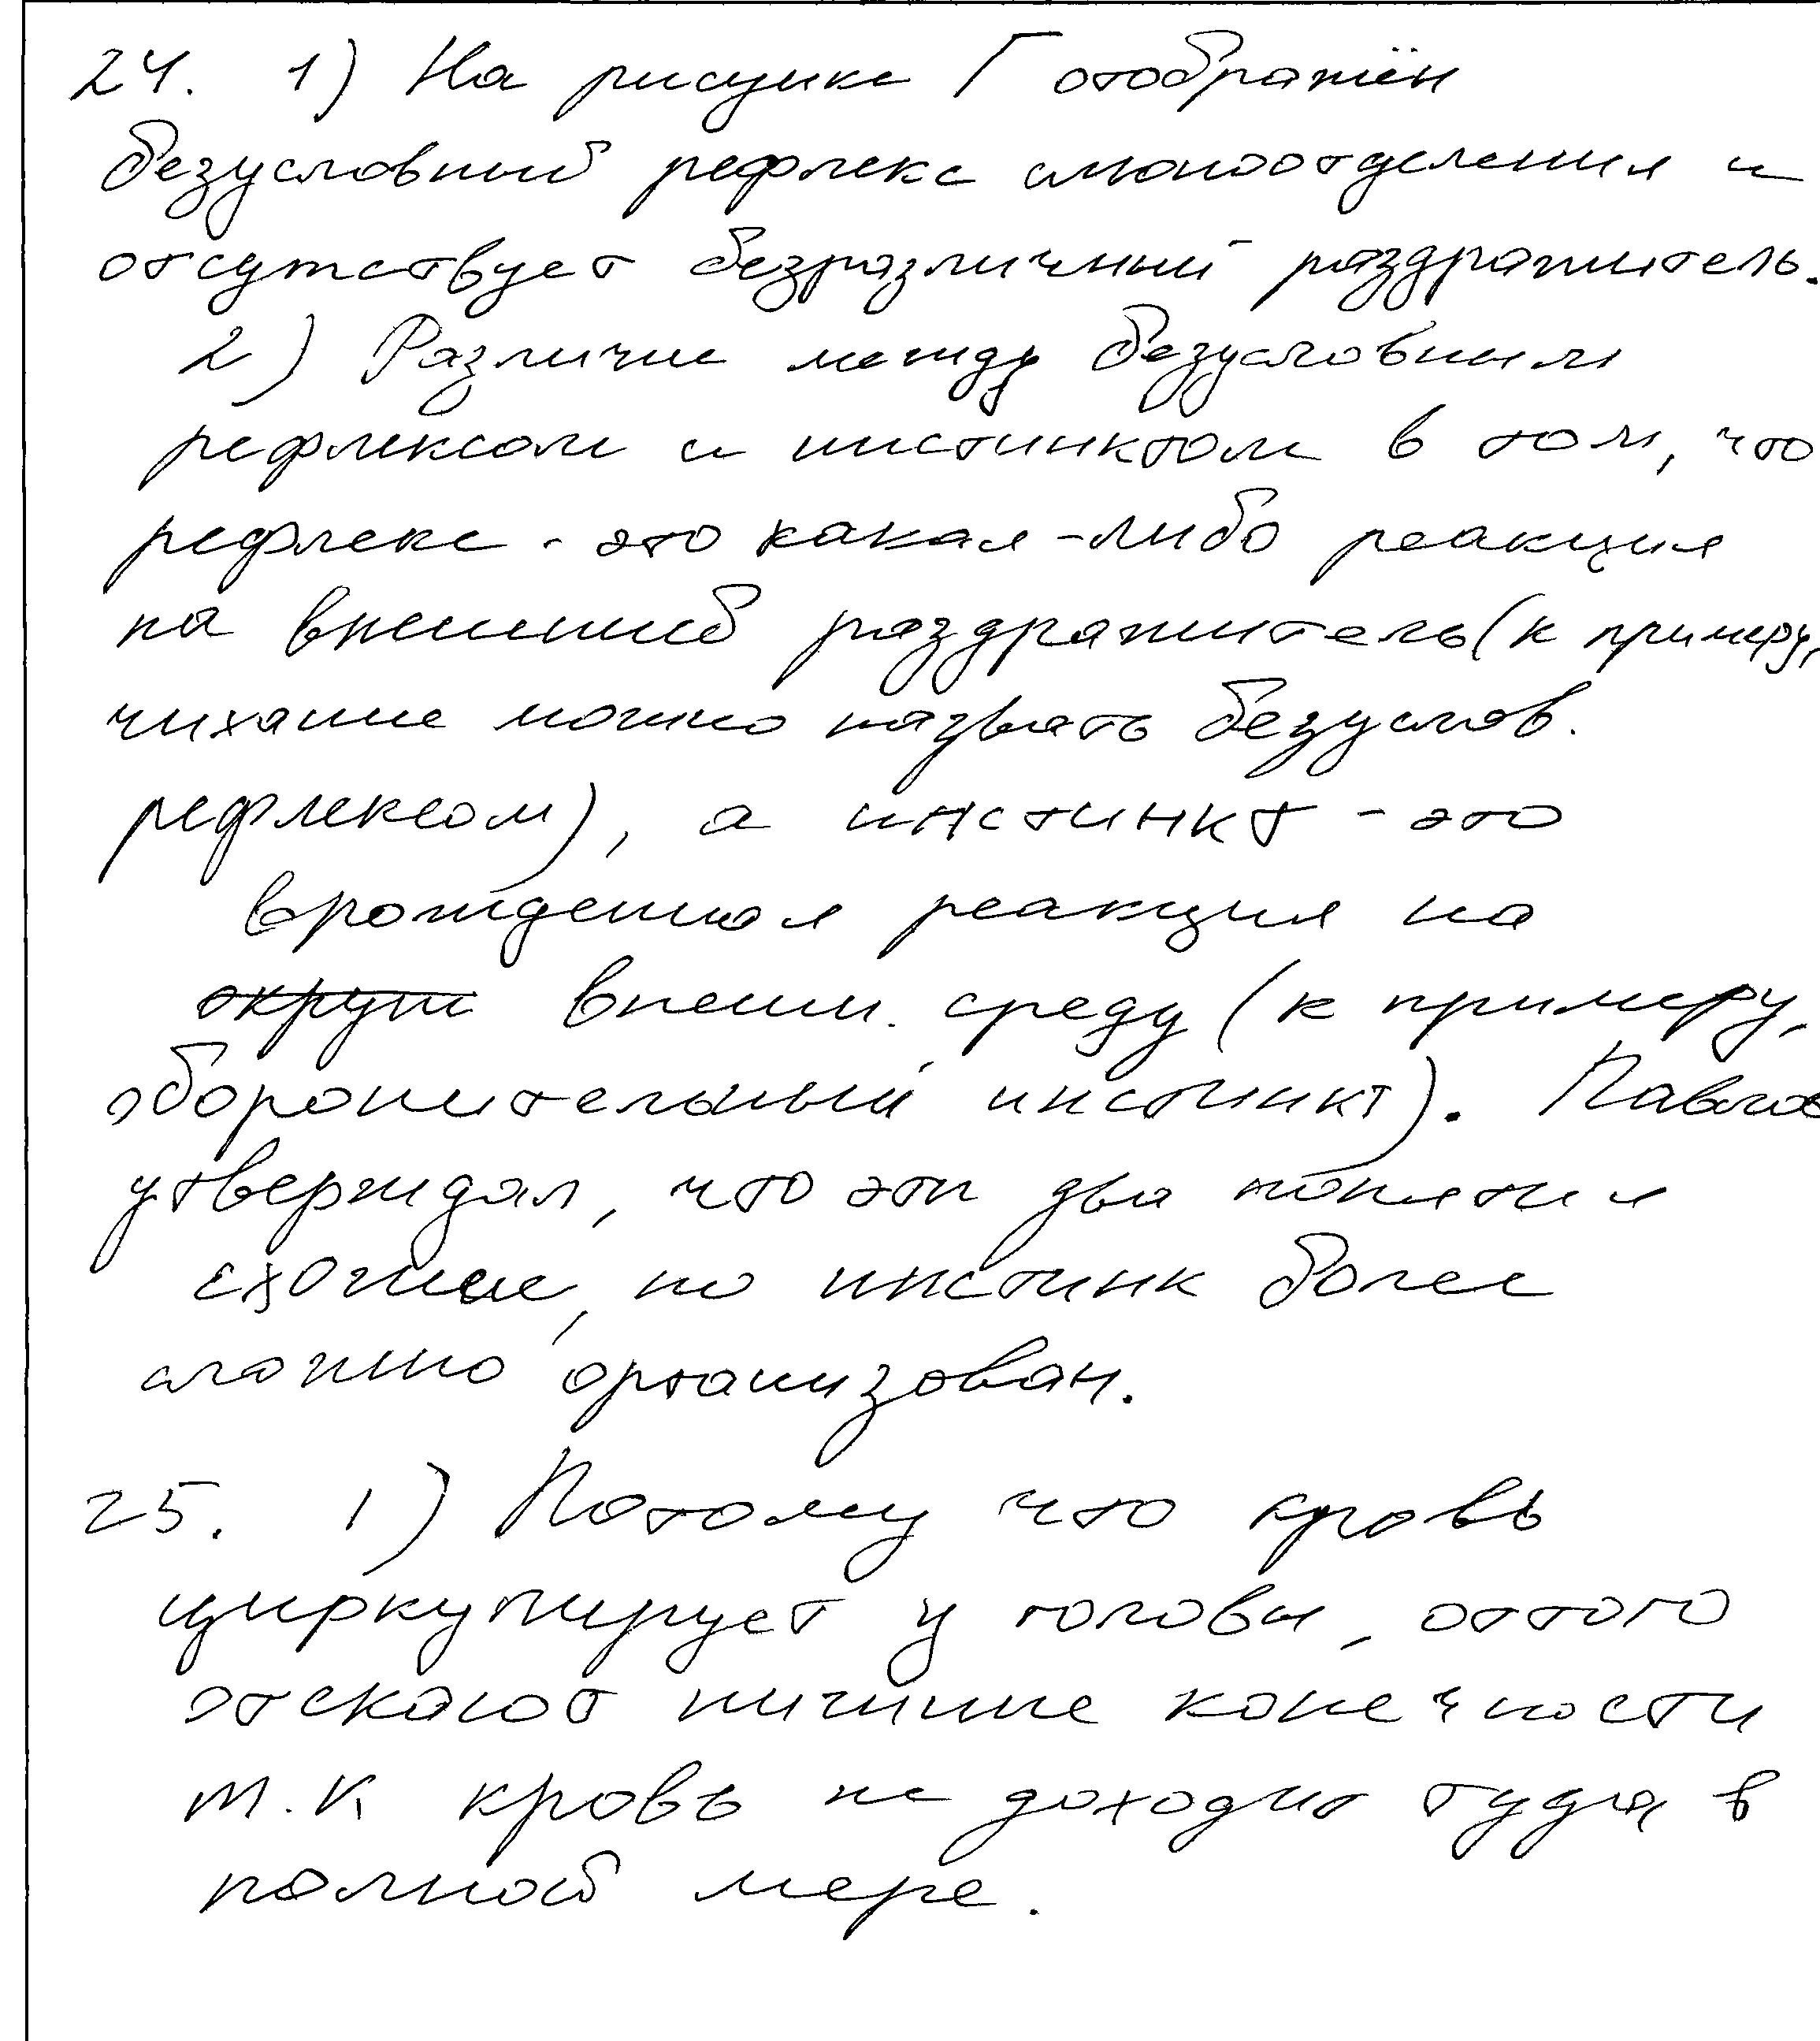 24. 1) На рисунке Г отображён
безусловный рефлекс слюноотделения и
отсутствует безразличный раздражитель.
2) Различие между безусловным
рефлексом и инстинктом в том, что
рефлекс - это какая-либо реакция
на внешний раздражитель (к примеру,
чихание можно назвать безуслов.
рефлексом), а инстинкт - это
врожденная реакция на
окруж внешн. среду (к примеру,
оборонительный инстинкт). Павлов
утверждал, что эти два понятия
схожие, но инстинк более
сложно организован.
25. 1) Потому что кровь
циркулирует у головы, оттого
отекают нижние конечности
т.к кровь не доходит туда в
полной мере.